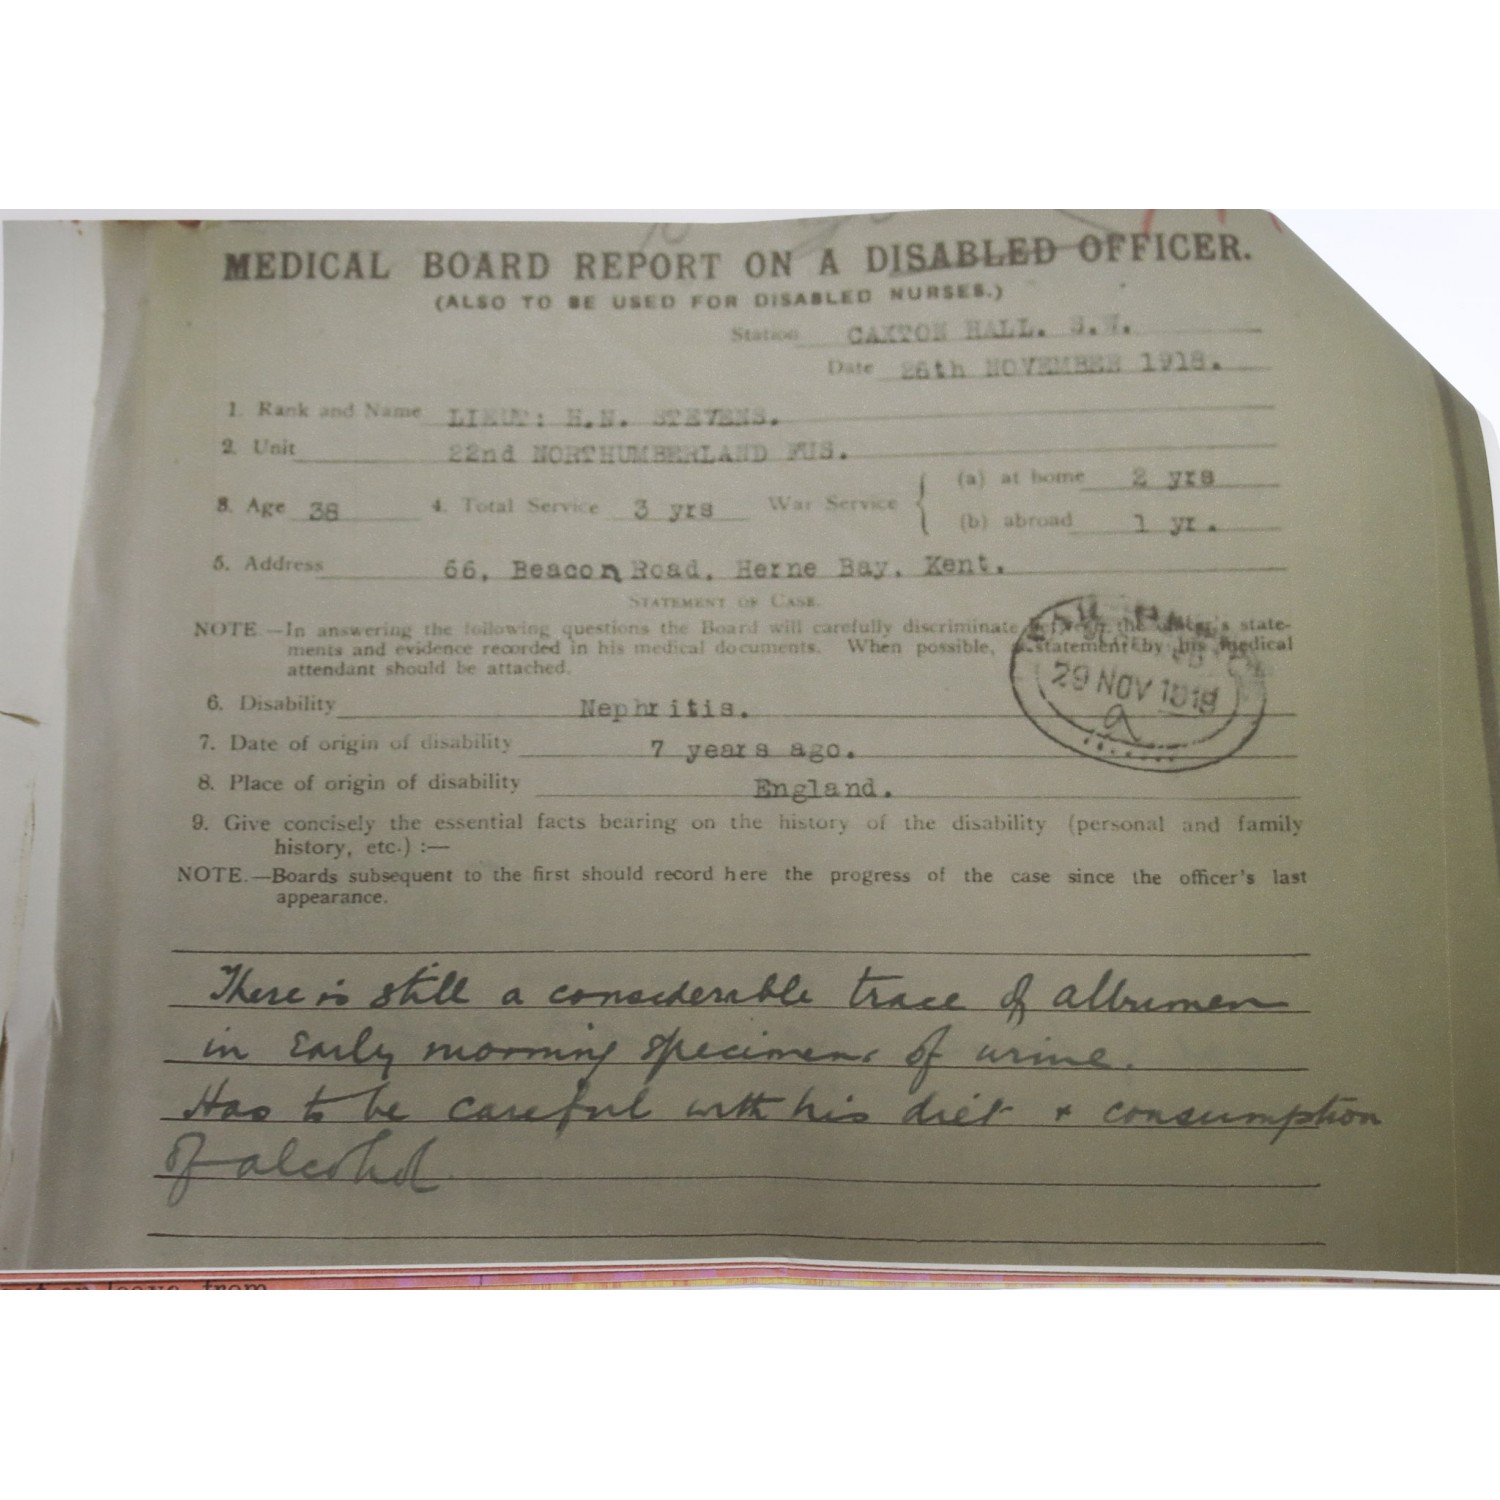 MEDICAL BOARD REPORT ON A DISABLED OFFICER.
(ALSO TO BE USED FOR DISABLED NURSES.)
Station CAXTON HALL. S.W.
Date 26th NOVEMBER 1918.
1. Rank and Name LIEUT: H.N. STEVENS.
2. Unit 22nd NORTHUMBERLAND FUS.
3. Age 38 4. Total Service 3 yrs War Service (a) at home 2 yrs
(b) abroad 1 yr.
5. Address 66, Beacon Road, Herne Bay, Kent.
STATEMENT OF CASE.
NOTE.—In answering the following questions the Board will carefully discriminate between the officer's state-
ments and evidence recorded in his medical documents. When possible, a statement by his medical
attendant should be attached.
29 NOV 1918
6. Disability Nephritis.
7. Date of origin of disability 7 years ago.
8. Place of origin of disability England.
9. Give concisely the essential facts bearing on the history of the disability (personal and family
history, etc.) :—
NOTE.—Boards subsequent to the first should record here the progress of the case since the officer's last
appearance.
There is still a considerable trace of albumen
in early morning specimens of urine.
Has to be careful with his diet & consumption
of alcohol.
leave from